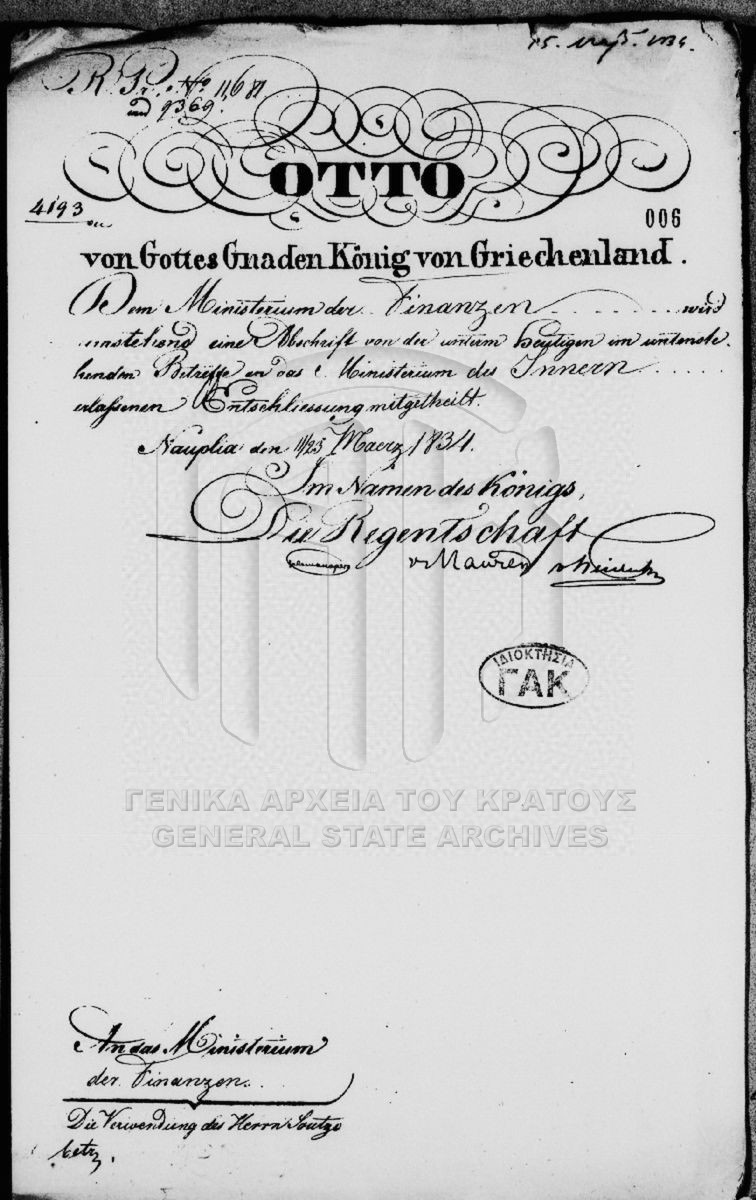 R. Pr. No 11,681
und 9369.
OTTO
4193
006
von Gottes Gnaden König von Griechenland.
Dem Ministerium der Finanzen wird
umstehend eine Abschrift von der unterm heutigen im unenste-
henden Betreffe an das Ministerium des Innern
erlassenen Entschliessung mitgetheilt.
Nauplia den 11/23 Maerz 1834.
Im Namen des Königs,
Die Regentschaft
v Maurer
ΙΔΙΟΚΤΗΣΙΑ
ΓΑΚ
ΓΕΝΙΚΑ ΑΡΧΕΙΑ ΤΟΥ ΚΡΑΤΟΥΣ
GENERAL STATE ARCHIVES
An das Ministerium
der Finanzen.
Die Verwendung des Herrn Soutzo
betr.